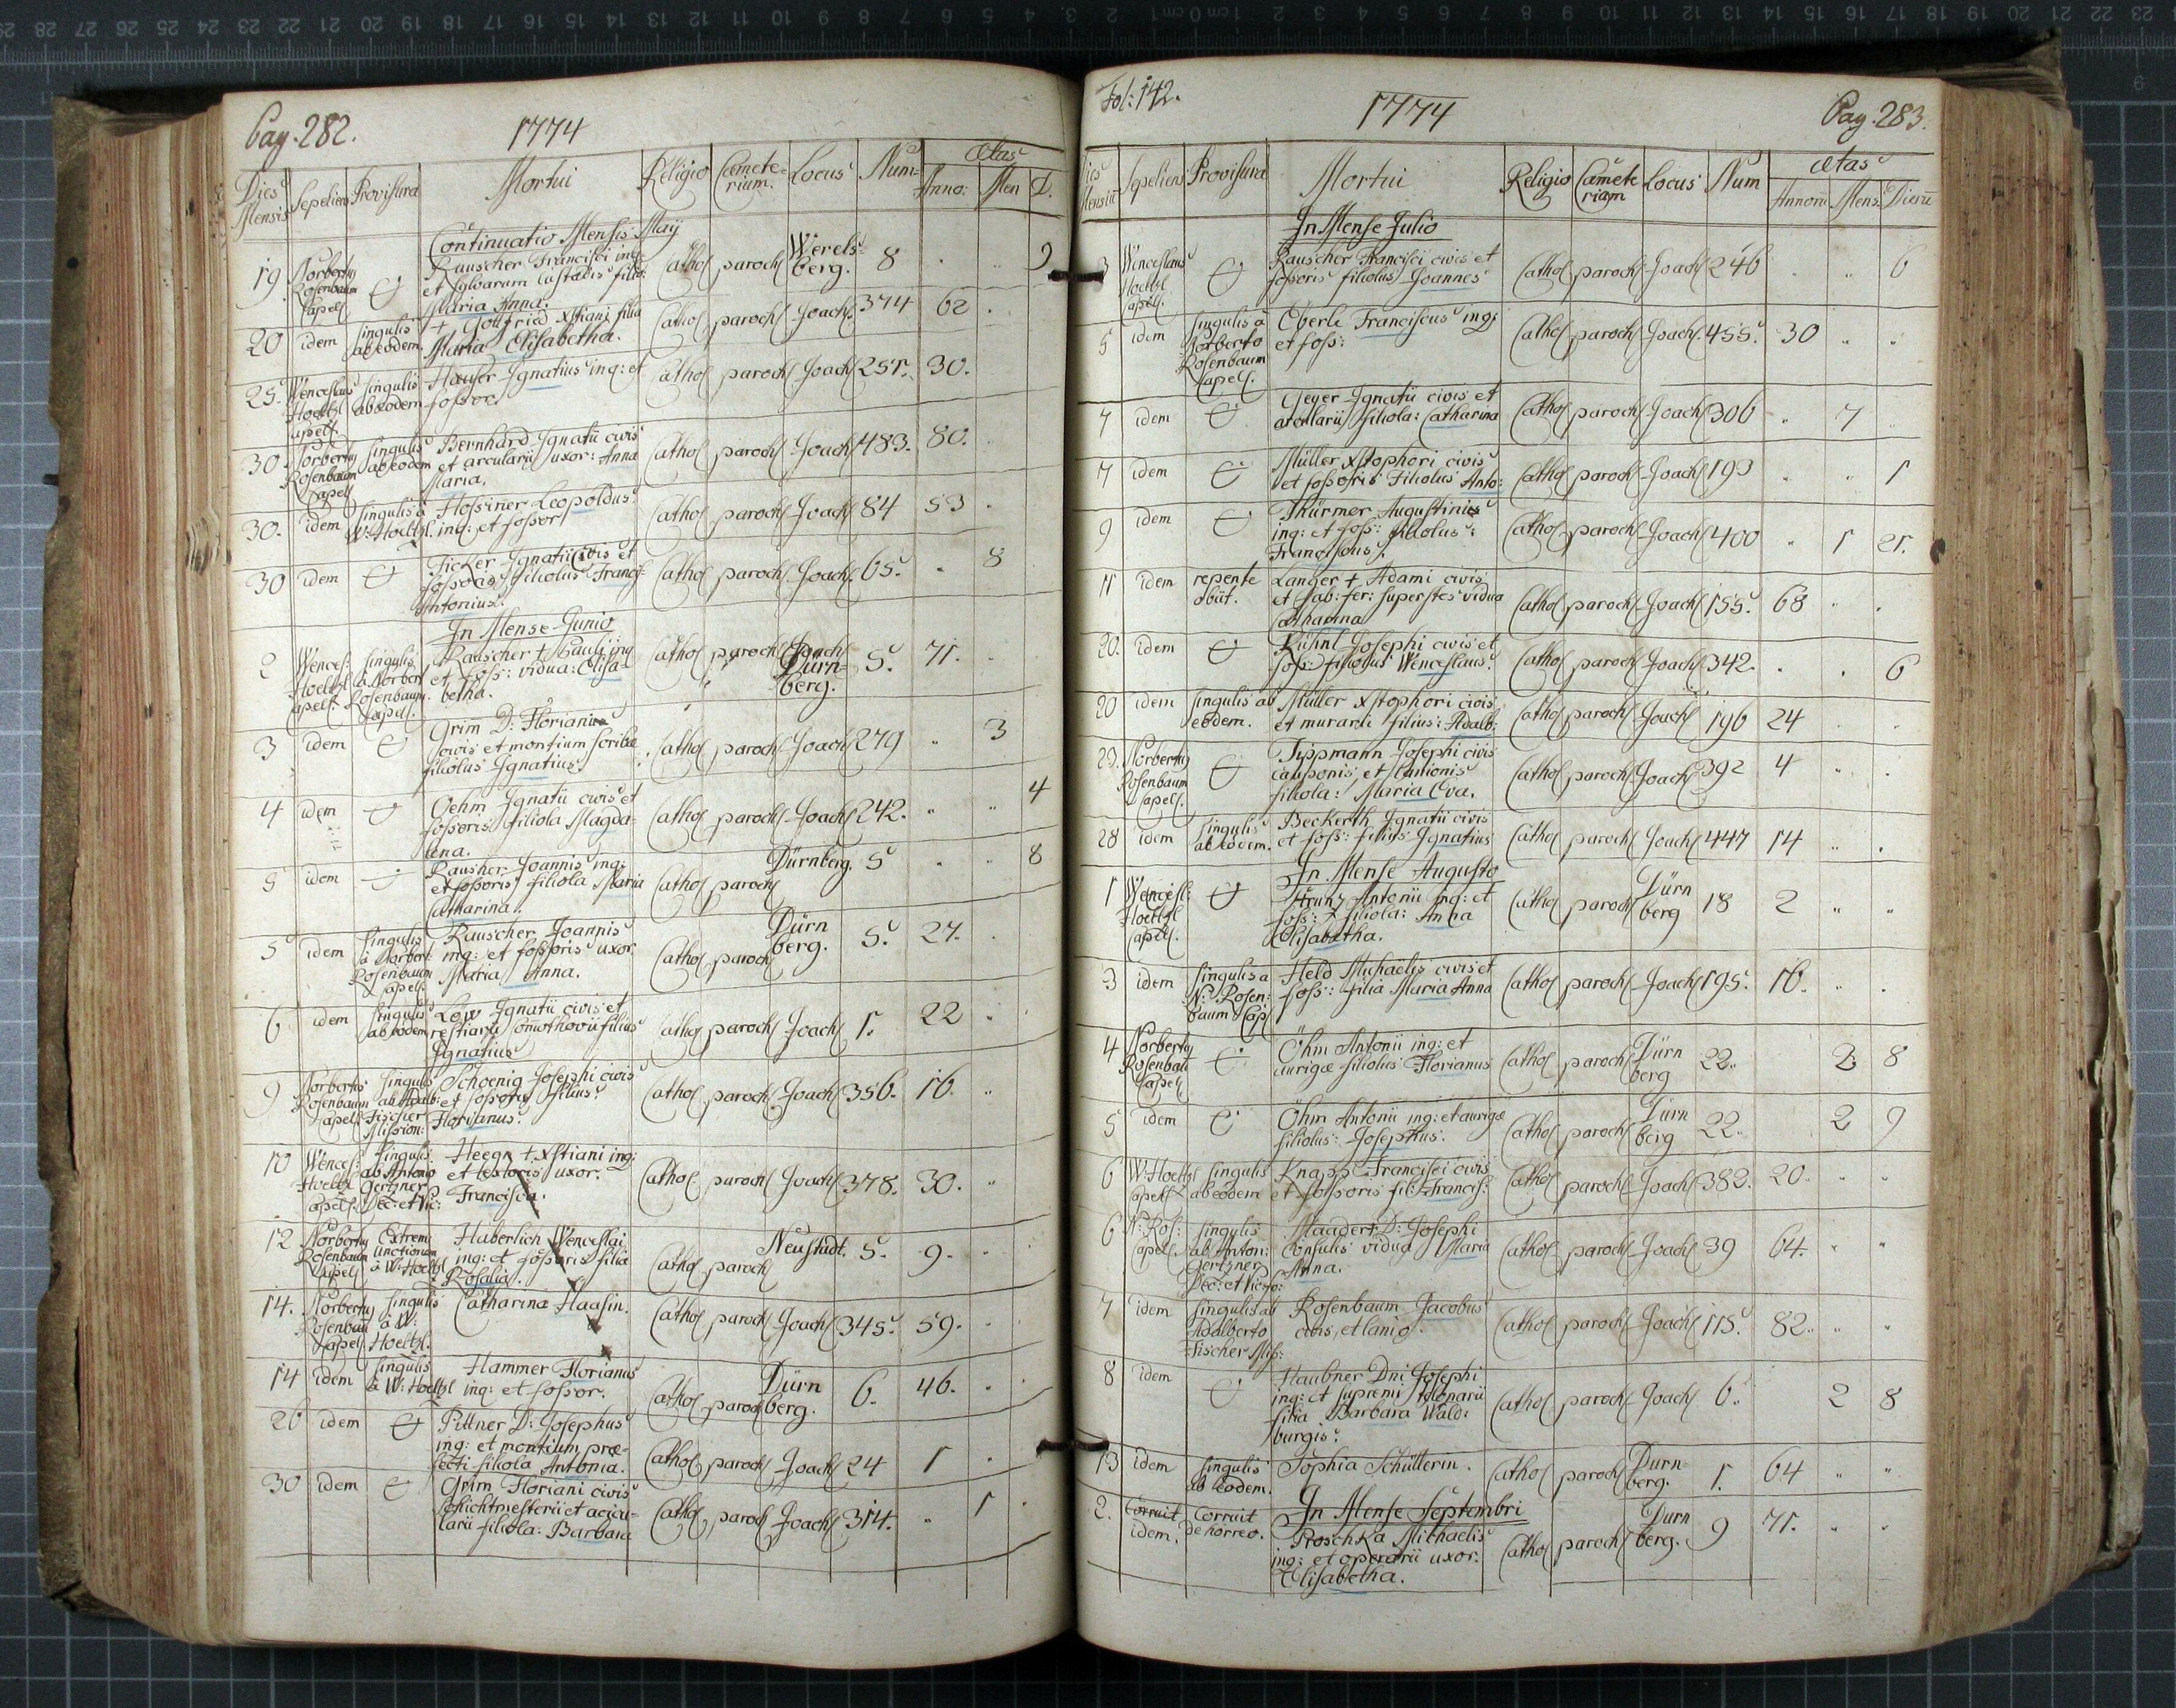 Pag. 282.
1774
Dies Mensis Sepeliens Provisura Mortui Religio Cæmete-rium. Locus Num: Ætas Anno: Men D.
Continuatio Mensis Maÿ
19 Norberty Rosenbaum Capell. Rauscher Francisci inq: et sylvarum custodis filia: Maria Anna. Cathol paroch Werels-berg. 8 . . 9
20 idem singulis ab eodem. + Gottfried Xstiani filia Maria Elisabetha. Cathol paroch Joach 374 62 .
25. Wenceslaus Hoeltzl capell. singulis ab eodem Hauser Ignatius inq: et fossor. Cathol paroch Joach 251. 30.
30. Norberty Rosenbaum Capell singulis ab eodem Bernhard Ignatii civis et arcularii uxor: Anna Maria. Cathol paroch Joach 483. 80.
30. idem singulis à W: Hoeltzl. Hossner Leopoldus inq: et fossor Cathol paroch Joach 84 53 .
30 idem Ficker Ignatii civis et fossoris filiolus Francis: Antonius. Cathol paroch Joach. 65. . 8
In Mense Junio
2 Wences: Hoeltzl capell. singulis à Norbert Rosenbaum. Capell. Rauscher + Pauli inq et foss: vidua: Elisa-betha. Cathol paroch Joach Dürn-berg. 5. 71.
3 idem Grim D: Floriani civis et montium scribæ filiolus Ignatius. Cathol paroch Joach 279 " 3
4 idem Oehm Ignatii civis et fossoris filiola Magda-lena. Cathol paroch Joach 242. " " 4
5 idem Rauscher Joannis inq: et fossoris filiola Maria Catharina. Cathol paroch Dürnberg. 5 . " 8
5 idem singulis à Norbert: Rosenbaum capell: Rauscher Joannis inq: et fossoris uxor Maria Anna. Cathol paroch Dürn berg. 5. 27. .
6 idem singulis ab eodem Löw Ignatii civis et restiarii Comothovii filius Ignatius Cathol paroch Joach 1. 22 .
9 Norbertus Rosenbaum Capell: singulis ab Adalb: Fischer Mission: Schoenig Josephi civis et fossoris filius Florianus. Cathol paroch Joach 356. 16. "
10 Wences: Hoeltzl capell: singulis ab Antonio Gertzner Dec: et Vic: Heegn + Xstiani inq: et textoris uxor. Francisca. Cathol paroch Joach 378. 30. "
12 Norberty Rosenbaum Capell Extrem: Unctionem à W: Hoeltzl Haberlich Wenceslai inq: et fossoris filia Rosalia. Cathol paroch Neustadt. 5. 9. .
14. Norberty Rosenbaū Capell singulis à W: Hoeltzl. Catharina Haasin. Cathol paroch Joach 345. 59. .
14 idem singulis à W: Hoeltzl Hammer Florianus inq: et fossor. Cathol paroch Dürn berg. 6. 46. .
26 idem Pittner D: Josephus inq: et montium præ-fecti filiola Antonia. Cathol paroch Joach 24 1 .
30 idem Grim Floriani civis Schichtmesterii et acicu-larii filiola: Barbara Cathol paroch Joach 314. " 1 .
Fol: 142.
1774
Pag. 283.
Dies Mensiū Sepeliens Provisura Mortui Religio Cæmete rium Locus Num Ætas Annorū Mens Dierū
In Mense Julio
3 Wenceslaus Hoeltzl capell. Rauscher Francisci civis et fossoris filiolus Joannes Cathol paroch Joach 246 . " 6
5 idem singulis à Norberto Rosenbaum Capell. Eberle Franciscus inq: et foss: Cathol paroch Joach. 455. 30 " "
7 idem Geyer Ignatii civis et arcularii filiola: Catharina Cathol paroch Joach 306 . 7
7 idem Müller Xstophori civis et fossoris Filiolus Anto: Cathol paroch Joach 193 . " 1
9 idem Thürmer Augustinus inq: et foss: filiolus: Franciscus. Cathol paroch Joach 400 " 1 21.
11 idem repente obiit. Langer + Adami civis et fab: fer: superstes vidua Catharina Cathol paroch Joach 155. 68 " .
20. idem Kühnl Josephi civis et foss: filiolus Wenceslaus. Cathol paroch Joach 342. . . 6
20 idem singulis ab eodem. Müller Xstophori civis et murarii filius: Adalb: Cathol paroch Joach 196 24
23. Norberty Rosenbaum Capell. Tippmann Josephi civis cauponis, et lanionis filiola: Maria Eva. Cathol paroch Joach 392 4 " .
28 idem singulis ab eodem. Beckerth Ignatii civis et foss: filius Ignatius Cathol paroch Joach 447 14 " .
In Mense Augusto
1 Wencesl: Hoeltzl Capell. Antonii inq: et foss: filiola: Anna Elisabetha. Cathol paroch Dürn berg 18 2 " "
3 idem singulis a N: Rosen: baum Cap Held Michaelis civis et foss: filia Maria Anna Cathol paroch Joach 195. 16. " .
4 Norberty Rosenbaū Capell Öhm Antonii inq: et aurigæ filiolus Florianus Cathol paroch Dürn berg 22. 2 8
5 idem Öhm Antonii inq: et aurigæ filiolus: Josephus. Cathol paroch Dürn berg 22. 2 9
6 W: Hoeltzl capell singulis ab eodem Knapp Francisci civis et fossoris fil: Francis: Cathol paroch Joach 382. 20. " "
6 N: Ros: Capel singulis ab Anton: Gertzner Dec: et Vic: fo: Maader D: Josephi Consulis vidua Maria Anna. Cathol paroch Joach 39 64. " "
7 idem singulis ab Adalberto Fischer Miss: Rosenbaum Jacobus civis, et lanio. Cathol paroch Joach 115. 82. " "
8 idem Haubner Dni Josephi inq: et supremi telonarii filia Barbara Wald: burgis. Cathol paroch Joach 6. 2 8
13 idem singulis ab eodem. Sophia Schüllerin. Cathol paroch Dürn-berg. 1. 64 " "
In Mense Septembri
2. Corruit idem. Corruit de horreo. Proschka Michaelis inq: et operarii uxor. Elisabetha. Cathol paroch Dürn berg. 9 71. " "